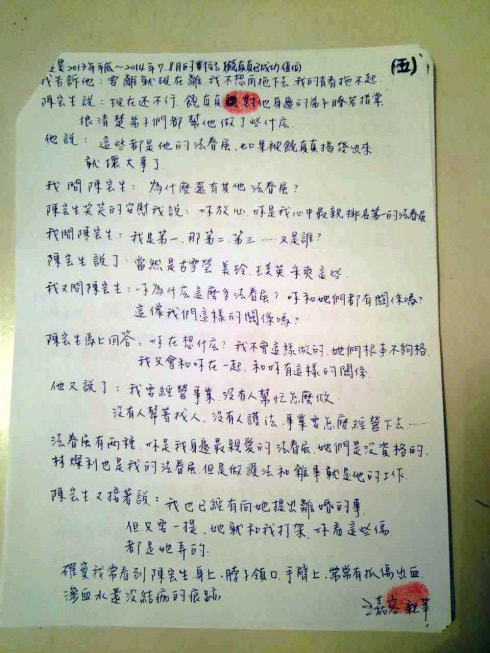 (五)
這是2013年年底~2014年7.8月的對話(饒真真已成功值佰)
我告訴他：要離就現在離，我不想再拖下去，我的青春拖不起.
陳宏生說：現在还不行，饒真真 對他身邊的弟子瞭若指掌
很清楚弟子們都幫他做了些什広.
他說： 這些都是他的法眷屬，如果被饒真真揭發出來
就壞大事了
我問陳宏生： 為什麼還有其他法眷屬?
陳宏生笑笑的安慰我說：妳放心，妳是我心中最親排名第一的法眷屬
我問陳宏生：我是第一，那第二、第三……又是誰?
陳宏生說了：當然是古雪瑩 美玲、王美英 這些.
我又問陳宏生：你為什広這麼多法眷屬? 你和她們都有關係嗎?
這像我們這樣的關係嗎?
陳宏生馬上回答，妳在想什広? 我不會這樣做的，她們根本不夠格.
我又會和妳在一起，和妳有這樣的關係.
他又說了：我要經營事業，沒有人幫忙怎麼做.
沒有人幫著找人，沒有人護法，事業要怎麼經營下去……
法眷屬有兩種，妳是我身邊最親愛的法眷屬，她們是沒資格的.
林燦利也是我的法眷屬，但是做護法和雜事就是他的工作.
陳宏生又接著說：我也已經有向她提出離婚的事.
但又要一提，她就和我打架，妳看這些傷
都是她弄的.
確實我常看到陳宏生身上，脖子領口、手臂上，常常有抓傷出血.
滲血水還沒結痂的痕跡.